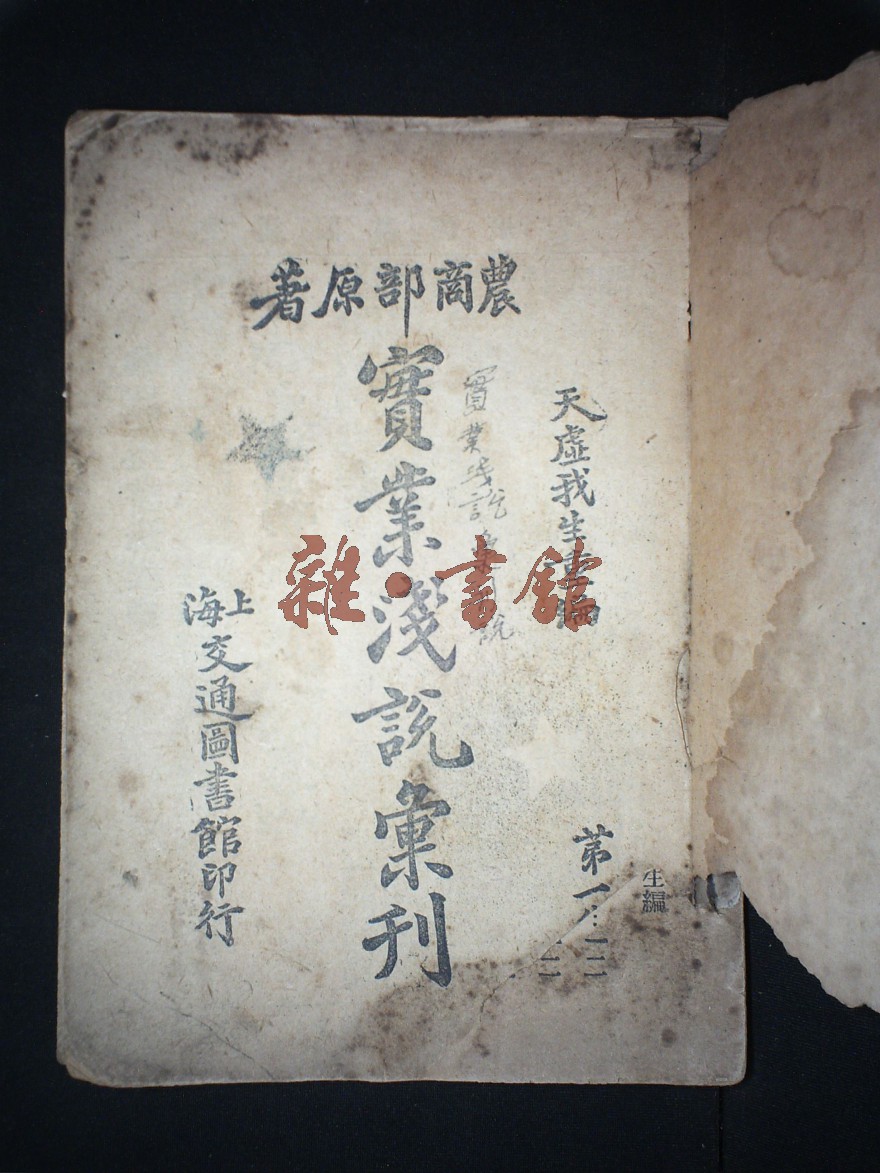 農商部原著
天虛我生重編
實業淺說彙刊
實業淺說彙刊
第一
上海交通圖書館印行
生編
雜·書館